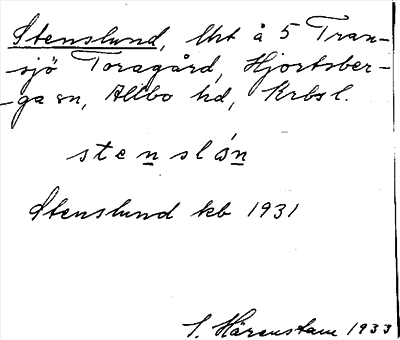 Stenslund, lht å 5 Tran-
sjö Toragård, Hjortsber-
ga sn, Allbo hd, Krbs l.
stenslón
Stenslund kb 1931
S. Härenstam 1933